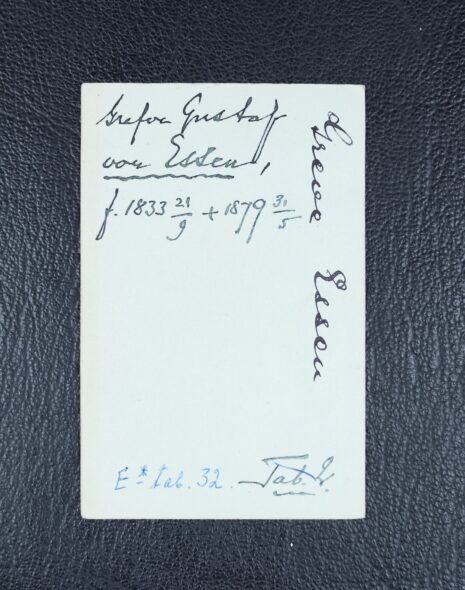 Grefve Gustaf
von Essen,
f. 1833 21/9 + 1879 31/5
Greve Essen
E* tab. 32. Tab.